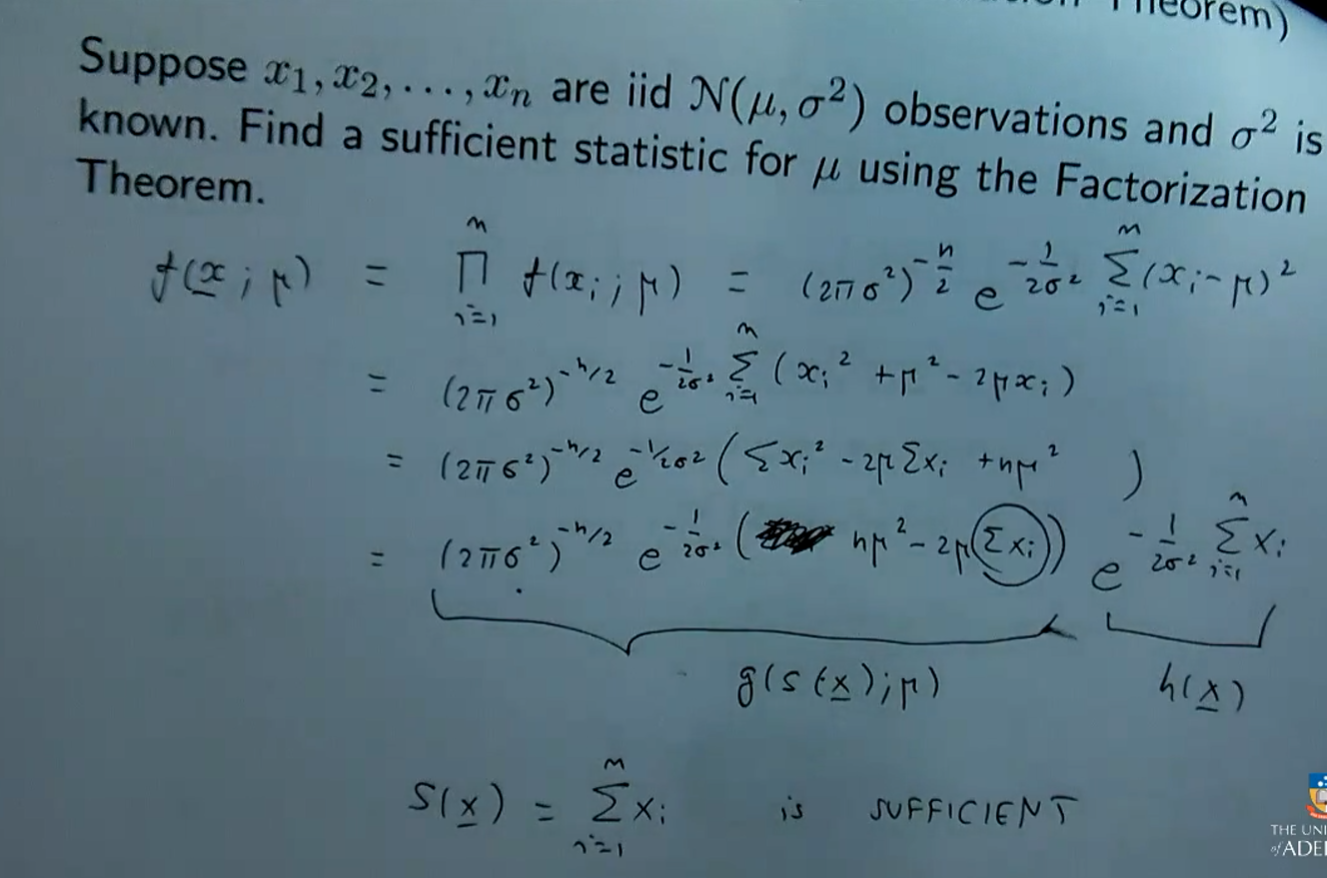 Theorem)
Suppose x₁, x₂, . . . , xₙ are iid N(μ, σ²) observations and σ² is
known. Find a sufficient statistic for μ using the Factorization
Theorem.
f(x̲ ; μ) = ∏ᵢ₌₁ⁿ f(xᵢ ; μ) = (2πσ²)^(-n/2) e^(-1/(2σ²) Σᵢ₌₁ⁿ (xᵢ - μ)²)
= (2πσ²)^(-n/2) e^(-1/(2σ²) Σᵢ₌₁ⁿ (xᵢ² + μ² - 2μxᵢ))
= (2πσ²)^(-n/2) e^(-1/2σ² (Σxᵢ² - 2μΣxᵢ + nμ²))
= (2πσ²)^(-n/2) e^(-1/(2σ²) (nμ² - 2μ(Σxᵢ))) e^(-1/(2σ²) Σᵢ₌₁ⁿ xᵢ)
g(s(x̲) ; μ) h(x̲)
S(x̲) = Σᵢ₌₁ⁿ xᵢ is SUFFICIENT
THE UNI
of ADE